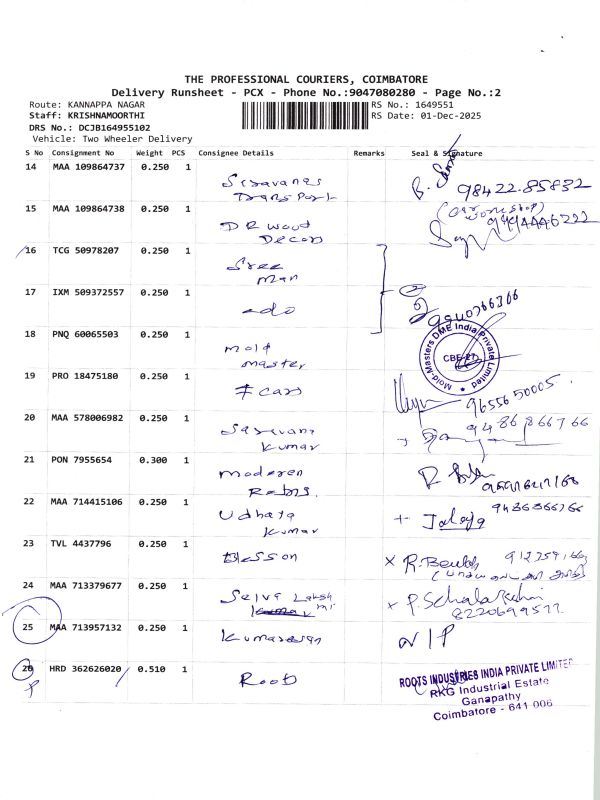 THE PROFESSIONAL COURIERS, COIMBATORE
Delivery Runsheet - PCX - Phone No.:9047080280 - Page No.:2
Route: KANNAPPA NAGAR RS No.: 1649551
Staff: KRISHNAMOORTHI RS Date: 01-Dec-2025
DRS No.: DCJB164955102
Vehicle: Two Wheeler Delivery
S No Consignment No Weight PCS Consignee Details Remarks Seal & Signature
14 MAA 109864737 0.250 1
Transport 98422.85832
15 MAA 109864738 0.250 1
DR Wood
Decors
16 TCG 50978207 0.250 1
Sree
Man
17 IXM 509372557 0.250 1
-do-
18 PNQ 60065503 0.250 1
Mold
Master
Mold-Masters DME India Private Limited
CBE-27
19 PRO 18475180 0.250 1
F Cars 9655650005.
20 MAA 578006982 0.250 1
Kumar 9486866766
21 PON 7955654 0.300 1
Moderen
22 MAA 714415106 0.250 1
Udhaya
Kumar
23 TVL 4437796 0.250 1
Blesson
24 MAA 713379677 0.250 1
Selva Laksh
mi
8220699577.
25 MAA 713957132 0.250 1
Kumaresan N/P
26 HRD 362626020 0.510 1
P Roots
ROOTS INDUSTRIES INDIA PRIVATE LIMITED
RKG Industrial Estate
Ganapathy
Coimbatore - 641 006